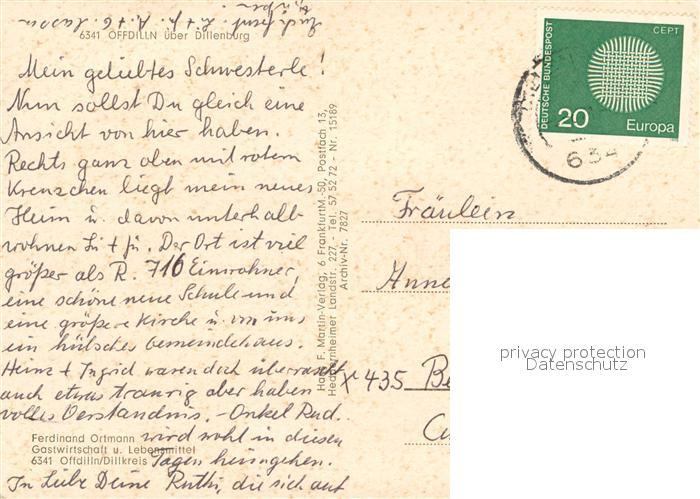 6341 OFFDILLN über Dillenburg
Mein geliebtes Schwesterle!
Nun sollst Du gleich eine
Ansicht von hier haben.
Rechts ganz oben mit rotem
Kreuzchen liegt mein neues
Heim u. davon unterhalb
wohnen Li + Ju. Der Ort ist viel
größer als R. 716 Einwohner,
eine schöne neue Schule und
eine größere Kirche u. von uns
ein hübsches Gemeindehaus.
Heinz + Ingrid waren doch überrascht
auch etwas traurig aber haben
volles Verständnis. - Onkel Rud.
wird wohl in diesen
Tagen heimgehen.
In Liebe Deine Ruthi, die sich auf
Ferdinand Ortmann
Gastwirtschaft u. Lebensmittel
6341 Offdilln/Dillkreis
Hans F. Martin-Verlag, 6 Frankfurt M.-50, Postfach 13,
Heddernheimer Landstr. 227 - Tel. 57 52 72 - Nr. 15189
Archiv-Nr. 7827
DEUTSCHE BUNDESPOST
CEPT
20 Europa
634
Fräulein
Anne
x 435 Be
privacy protection
Datenschutz